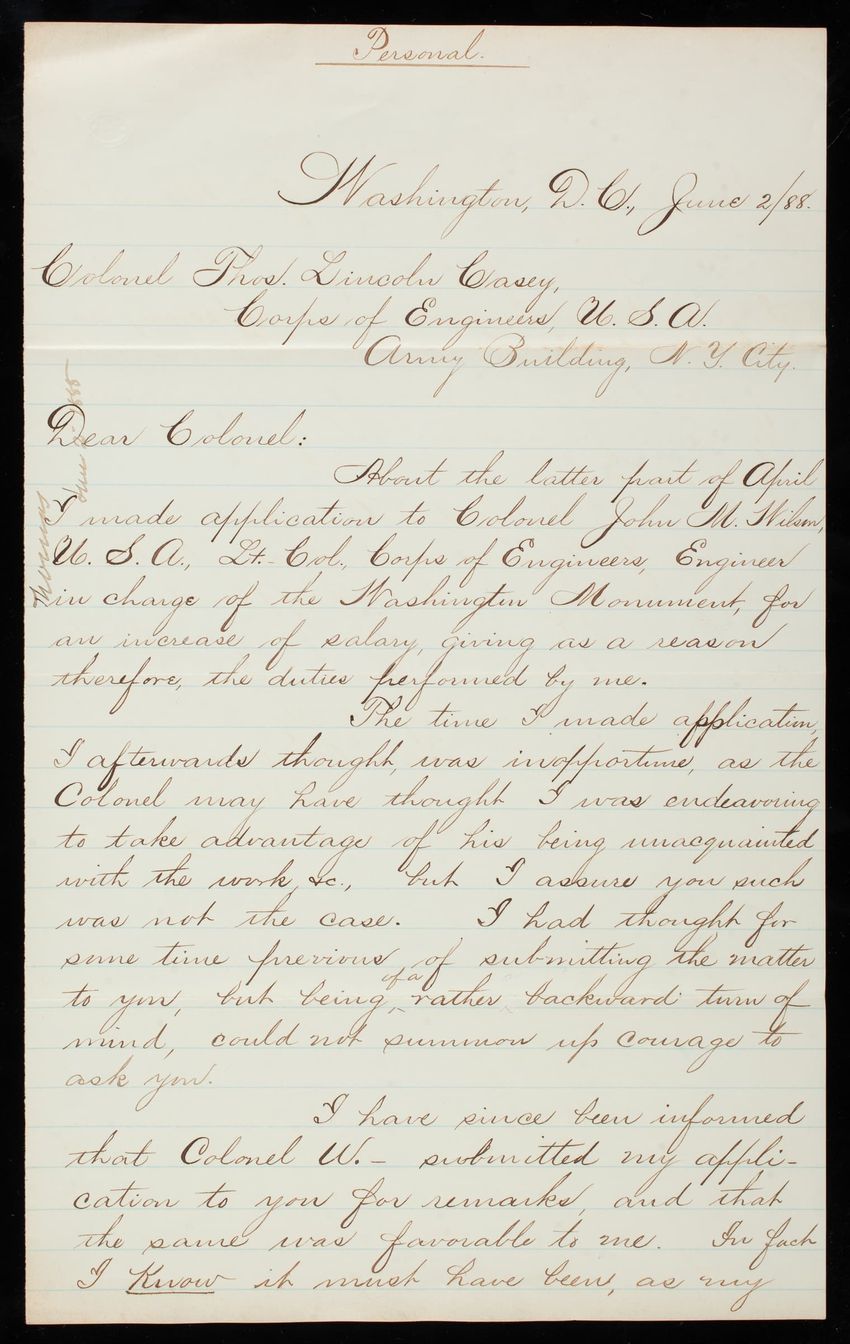 Personal.
Washington, D. C., June 2/88.
Colonel Thos. Lincoln Casey,
Corps of Engineers, U. S. A.
Army Building, N. Y. City.
Dear Colonel:
About the latter part of April
I made application to Colonel John M. Wilson,
U. S. A., Lt.-Col., Corps of Engineers, Engineer
in charge of the Washington Monument, for
an increase of salary, giving as a reason
therefore, the duties performed by me.
The time I made application,
I afterwards thought, was inopportune, as the
Colonel may have thought I was endeavoring
to take advantage of his being unacquainted
with the work, &c., but I assure you such
was not the case. I had thought for
some time previous, of submitting the matter
to you, but being of a rather backward turn of
mind, could not summon up courage to
ask you.
I have since been informed
that Colonel W. - submitted my appli-
cation to you for remarks, and that
the same was favorable to me. In fact
I Know it must have been, as my
Thomas
June 2. 1888